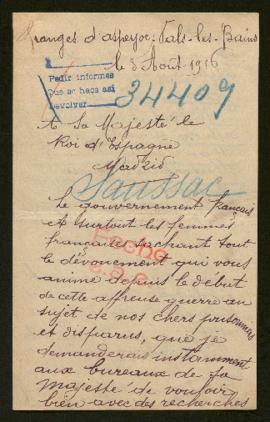 Granges d'aspeyoc. Vals-les-Bains
le 3 Août 1916
Pedir informes
Que se haga así
Devolver
34409
A Sa Majesté le
Roi d'Espagne
Madrid
Saussac
Le gouvernement français
et surtout les femmes
françaises sachant tout
le dévouement qui vous
anime depuis le début
de cette affreuse guerre au
sujet de nos chers prisonniers
et disparus, que je
demanderais instamment
aux bureaux de sa
majesté de vouloir
bien avec des recherches